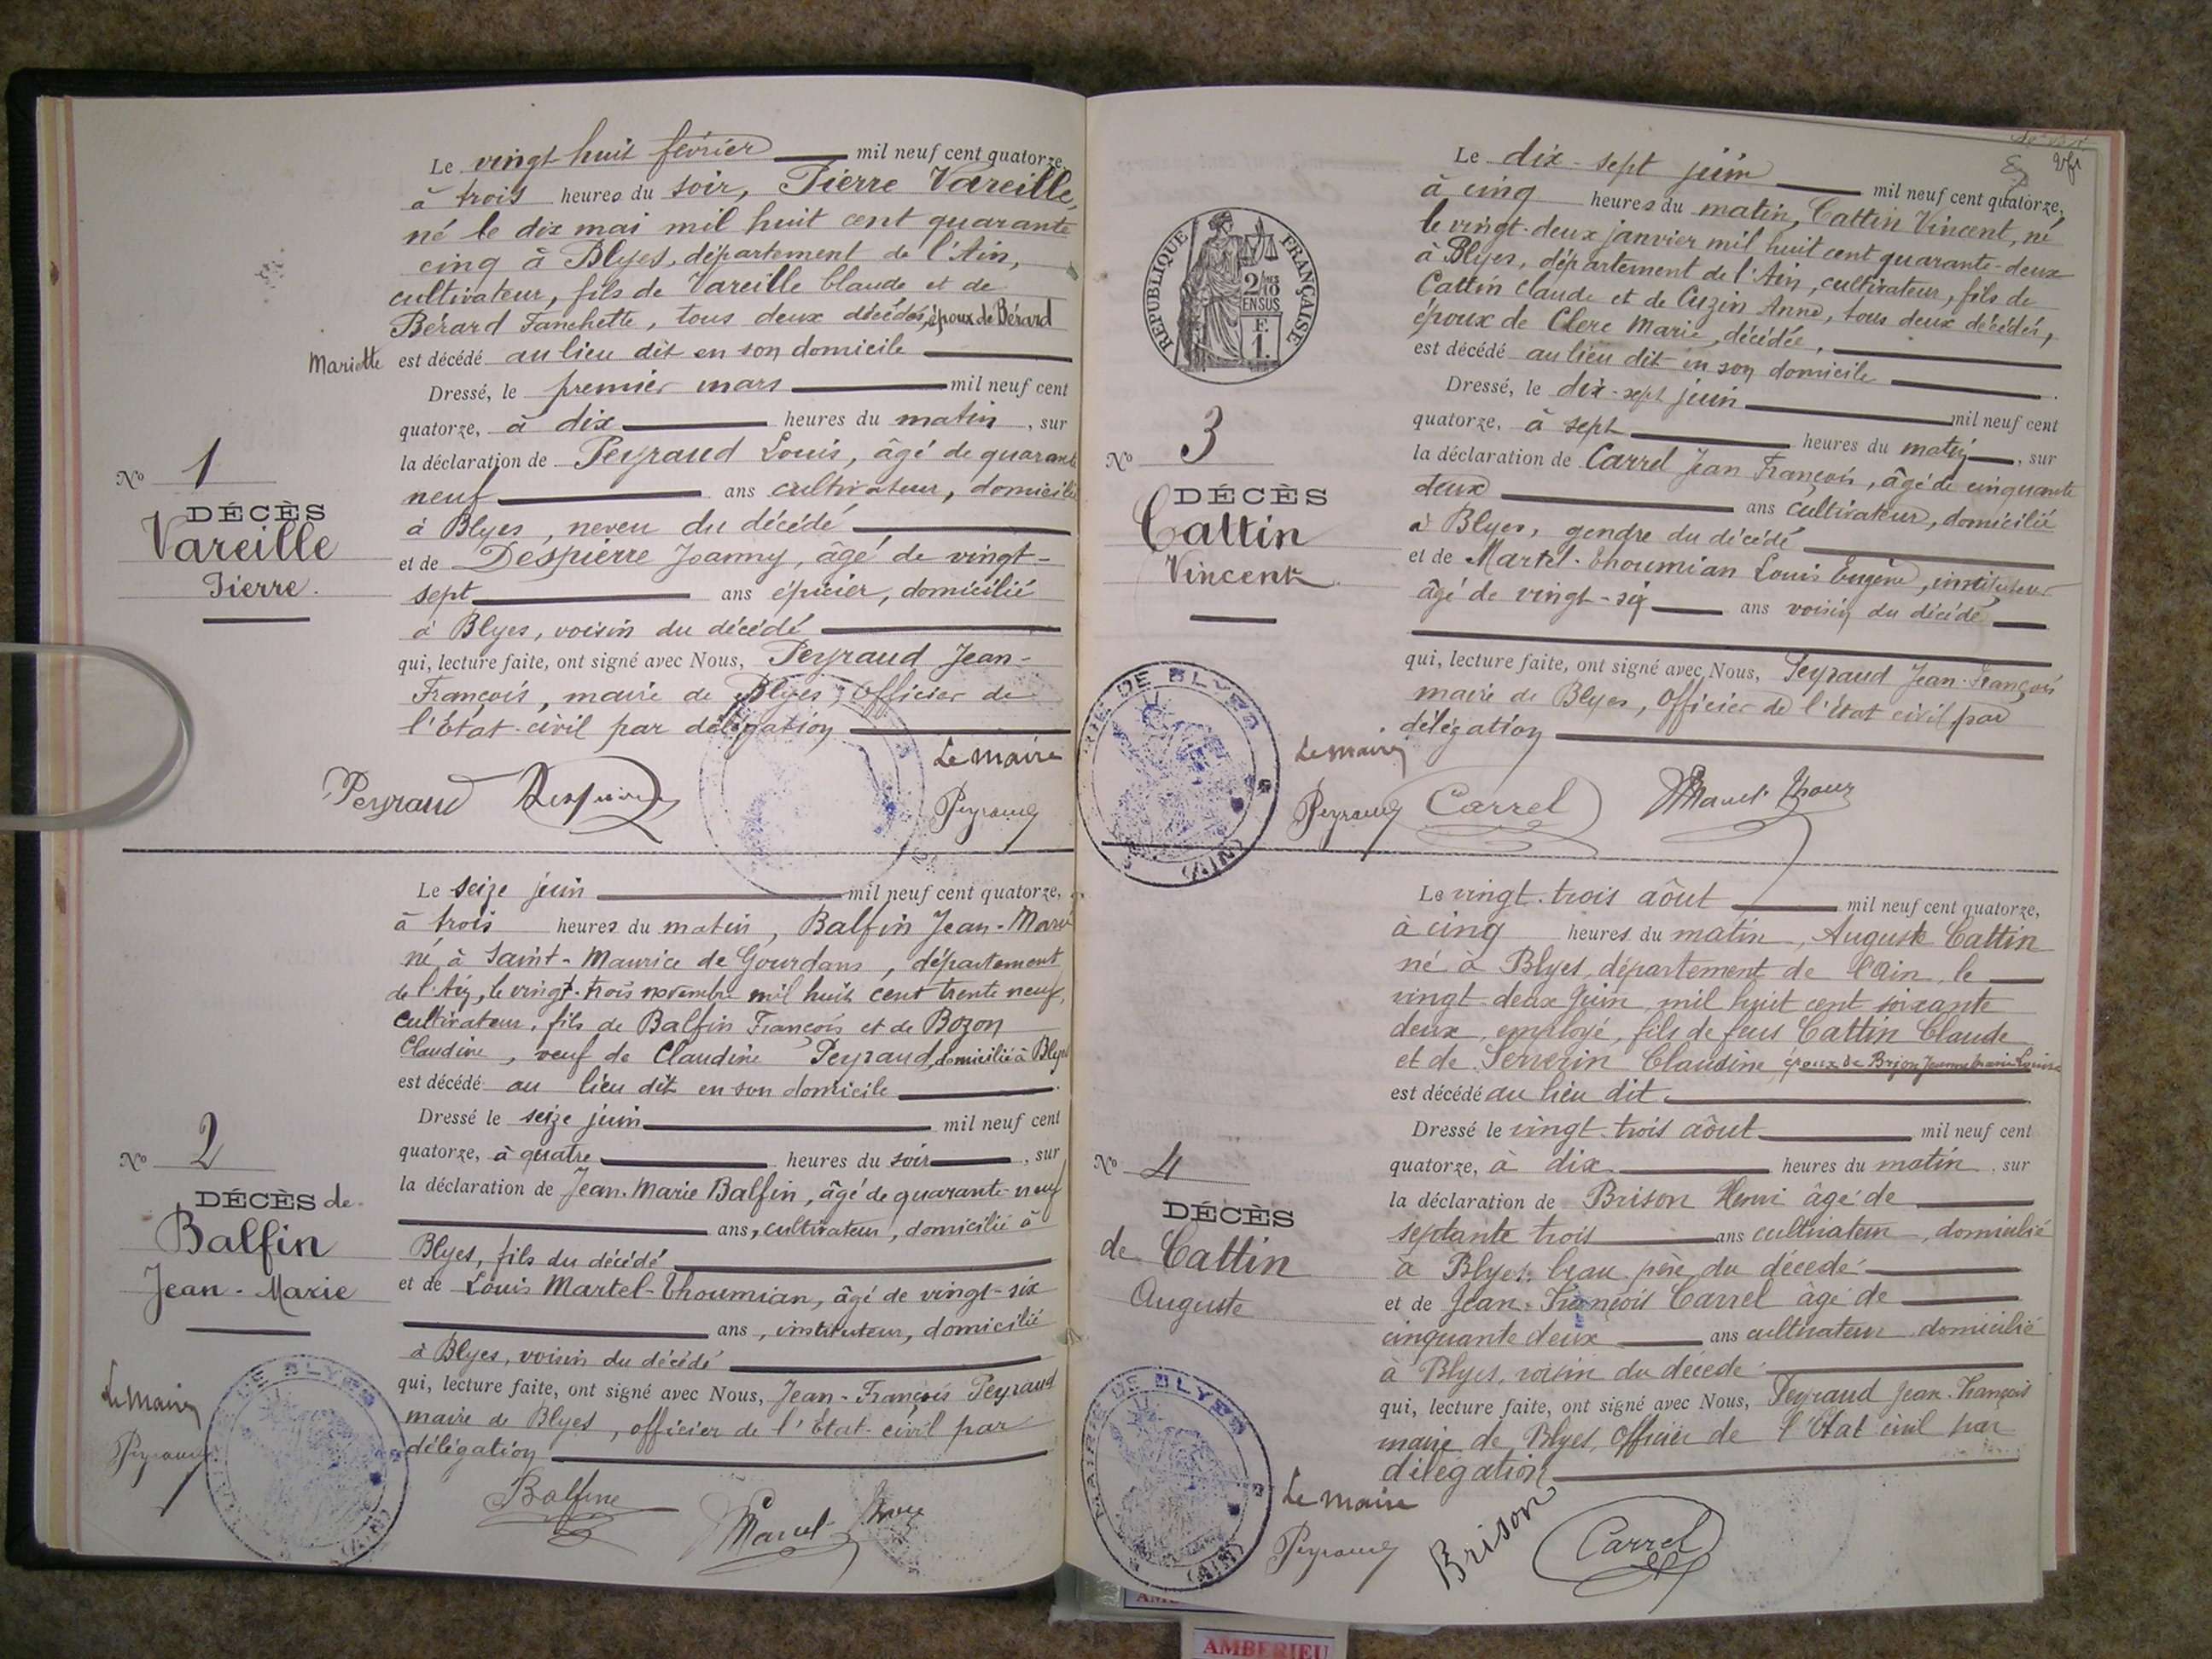 Le vingt-huit février mil neuf cent quatorze,
à trois heures du soir, Pierre Vareille,
né le dix mai mil huit cent quarante
cinq à Blyes, département de l'Ain,
cultivateur, fils de Vareille Claude et de
Bérard Fanchette, tous deux décédés, époux de Bérard
Mariette est décédé au lieu dit en son domicile
Dressé, le premier mars mil neuf cent
quatorze, à dix heures du matin, sur
la déclaration de Peyraud Louis, âgé de quarante
neuf ans cultivateur, domicilié
à Blyes, neveu du décédé
et de Despierre Joanny, âgé de vingt-
sept ans épicier, domicilié
à Blyes, voisin du décédé
qui, lecture faite, ont signé avec Nous, Peyraud Jean-
François, maire de Blyes, Officier de
l'État-civil par délégation
Le maire
Peyraud Despierre Peyraud
No 1
DÉCÈS
Vareille
Pierre.
Le seize juin mil neuf cent quatorze,
à trois heures du matin, Balfin Jean-Marie
né à Saint-Maurice de Gourdans, département
de l'Ain, le vingt-trois novembre mil huit cent trente neuf,
cultivateur, fils de Balfin François et de Bozon
Claudine, veuf de Claudine Peyraud, domicilié à Blyes
est décédé au lieu dit en son domicile
Dressé le seize juin mil neuf cent
quatorze, à quatre heures du soir, sur
la déclaration de Jean-Marie Balfin, âgé de quarante-neuf
ans, cultivateur, domicilié à
Blyes, fils du décédé
et de Louis Martel-Thoumian, âgé de vingt-six
ans, instituteur, domicilié
à Blyes, voisin du décédé
qui, lecture faite, ont signé avec Nous, Jean-François Peyraud
maire de Blyes, officier de l'État-civil par
délégation
No 2
DÉCÈS de
Balfin
Jean-Marie
Le Maire
Peyraud
DE BLYES
(AIN)
Balfin
Le dix-sept juin mil neuf cent quatorze,
à cinq heures du matin, Cattin Vincent, né
le vingt-deux janvier mil huit cent quarante-deux
à Blyes, département de l'Ain, cultivateur, fils de
Cattin Claude et de Cuzin Anne, tous deux décédés,
époux de Clerc Marie, décédée,
est décédé au lieu dit en son domicile
Dressé, le dix-sept juin mil neuf cent
quatorze, à sept heures du matin, sur
la déclaration de Carrel Jean François, âgé de cinquante
deux ans cultivateur, domicilié
à Blyes, gendre du décédé
et de Martel-Thoumian Louis Eugène, instituteur
âgé de vingt-six ans voisin du décédé
qui, lecture faite, ont signé avec Nous, Peyraud Jean-François
maire de Blyes, Officier de l'État civil par
délégation
RÉPUBLIQUE FRANÇAISE
2/10ES
EN SUS
F.
1.
No 3
DÉCÈS
Cattin
Vincent
MAIRIE DE BLYES
(AIN)
Le maire
Peyraud Carrel
Le vingt-trois aôut mil neuf cent quatorze,
à cinq heures du matin, Auguste Cattin
né à Blyes, département de l'Ain, le
vingt-deux Juin mil huit cent soixante
deux, employé, fils de feus Cattin Claude
et de Serverin Claudine,
est décédé au lieu dit.
Dressé le vingt-trois aôut mil neuf cent
quatorze, à dix heures du matin, sur
la déclaration de Brison Henri âgé de
septante trois ans cultivateur, domicilié
à Blyes, beau père du décédé
et de Jean-François Carrel âgé de
cinquante deux ans cultivateur domicilié
à Blyes, voisin du décédé
qui, lecture faite, ont signé avec Nous, Peyraud Jean-François
maire de Blyes, Officier de l'État civil par
délégation
No 4
DÉCÈS
de Cattin
Auguste
MAIRIE DE BLYES
(AIN)
Le maire
Peyraud Brison Carrel
AMBERIEU